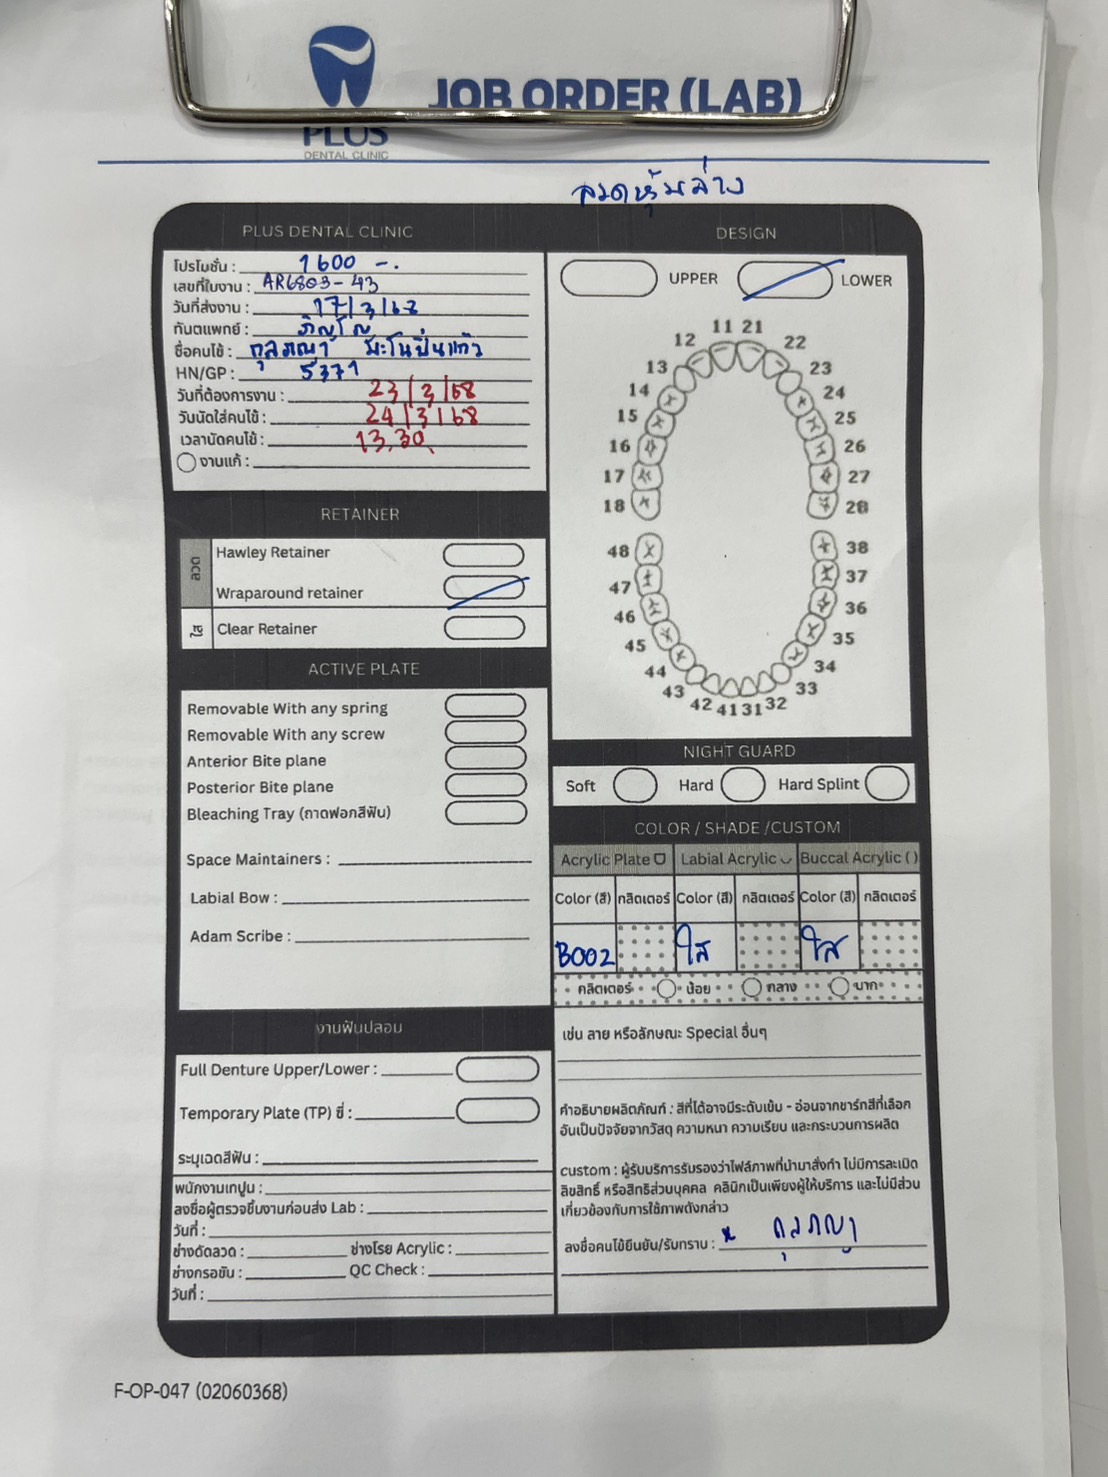 JOB ORDER (LAB)
PLUS
DENTAL CLINIC
ลวดหุ้มล่าง
PLUS DENTAL CLINIC
โปรโมชั่น : 1600 -.
เลขที่ใบงาน : AR6803-43
วันที่ส่งงาน : 17/3/68
ทันตแพทย์ : ภิญโญ
ชื่อคนไข้ : กุลภญา มะโนปิ่นแก้ว
HN/GP : 5371
วันที่ต้องการงาน : 23/3/68
วันนัดใส่คนไข้ : 24/3/68
เวลานัดคนไข้ : 13.30
งานแก้ :
RETAINER
ลวด
Hawley Retainer
Wraparound retainer
ใส
Clear Retainer
ACTIVE PLATE
Removable With any spring
Removable With any screw
Anterior Bite plane
Posterior Bite plane
Bleaching Tray (ถาดฟอกสีฟัน)
Space Maintainers :
Labial Bow :
Adam Scribe :
งานฟันปลอม
Full Denture Upper/Lower :
Temporary Plate (TP) ซี่ :
ระบุเฉดสีฟัน :
พนักงานเทปูน :
ลงชื่อผู้ตรวจชิ้นงานก่อนส่ง Lab :
วันที่ :
ช่างดัดลวด : ช่างโรย Acrylic :
ช่างกรอขัน : QC Check :
วันที่ :
DESIGN
UPPER LOWER
11 21
12 22
13 23
14 24
15 25
16 26
17 27
18 28
48 38
47 37
46 36
45 35
44 34
43 33
42 41 31 32
NIGHT GUARD
Soft Hard Hard Splint
COLOR / SHADE /CUSTOM
Acrylic Plate Labial Acrylic Buccal Acrylic ( )
Color (สี) กลิตเตอร์ Color (สี) กลิตเตอร์ Color (สี) กลิตเตอร์
B002 ใส ใส
กลิตเตอร์ น้อย กลาง มาก
เช่น ลาย หรือลักษณะ Special อื่นๆ
คำอธิบายผลิตภัณฑ์ : สีที่ได้อาจมีระดับเข้ม - อ่อนจากชาร์ทสีที่เลือก
อันเป็นปัจจัยจากวัสดุ ความหนา ความเรียบ และกระบวนการผลิต
custom : ผู้รับบริการรับรองว่าไฟล์ภาพที่นำมาสั่งทำ ไม่มีการละเมิด
ลิขสิทธิ์ หรือสิทธิส่วนบุคคล คลินิกเป็นเพียงผู้ให้บริการ และไม่มีส่วน
เกี่ยวข้องกับการใช้ภาพดังกล่าว
ลงชื่อคนไข้ยืนยัน/รับทราบ : x กุลภญา
F-OP-047 (02060368)